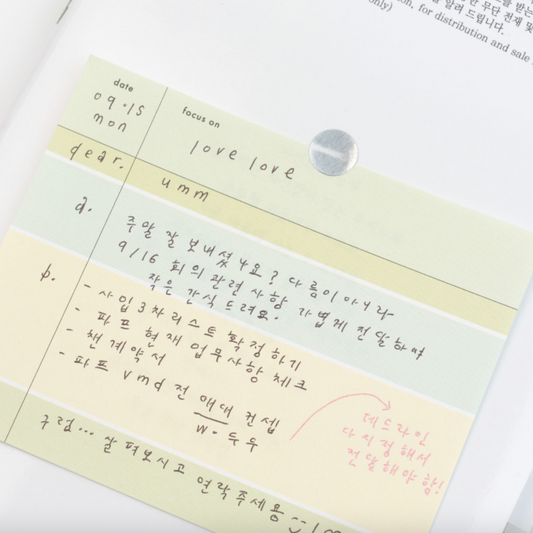 를 받는
한 무단 전재 및
알려 드립니다.
tion, for distribution and sale
only)
date
09.15
mon
focus on
love love
dear.
umm
a.
주말 잘 보내셨나요? 다름이 아니라
9/16 회의 관련 사항 가볍게 전달하며
작은 간식 드려요.
b.
- 사입 3차 리스트 확정하기
- 파프 현재 업무사항 체크
- 챈 계약서
- 파프 vmd 전 매대 컨셉
w. 두두
데드라인
다시 정해서
전달해야 함!
그럼... 살펴보시고 연락주세용